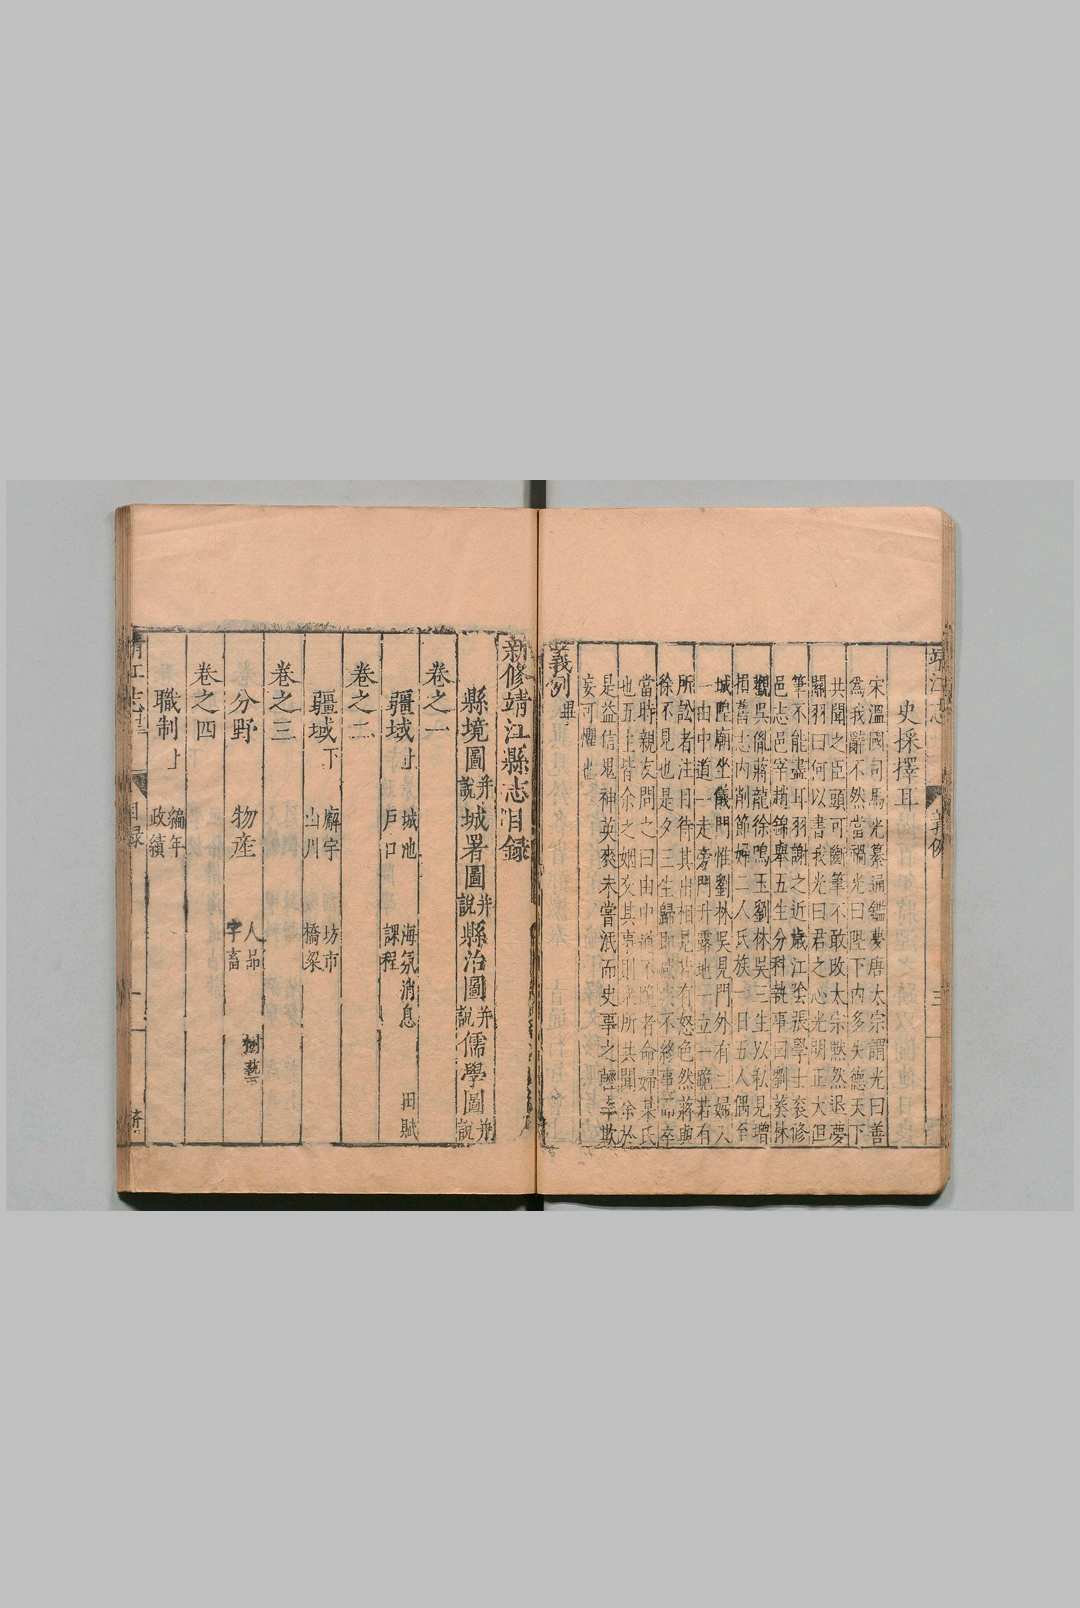 史採擇耳
宋溫國司馬光纂通鑑夢唐太宗謂光曰善
為我辭不然當禍光曰陛下內多失德天下
共聞之臣頭可斷筆不敢改太宗默然退夢
關羽曰何以書我光曰君之心光明正大但
筆不能盡耳羽謝之近歲江陰張學士袞修
邑志邑宰趙錦舉五生分科執事曰劉葵林
觀吳胤蔣龍徐鳴玉劉林吳三生以私見增
損舊志內削節婦二人氏族一日五人偶至
城隍廟坐儀門惟劉林吳見門外有二婦人
一由中道一走旁門升露地子立一跪若有
所訟者注目待其出相見皆有怒色然蔣與
徐不見也是夕三生歸即感疾不終事而卒
當時親友問之曰由中道不跪者命婦某氏
也五生皆余之姻友其事則衆所共聞余於
是益信鬼神英爽未嘗泯而史事之輕率欺
妄可懼也
義例畢
新修靖江縣志目錄
縣境圖并說 城署圖并說 縣治圖并說 儒學圖并說
卷之一
疆域上 城池 海氛消息 田賦 戶口 課程
卷之二
疆域下 廨宇 坊市 山川 橋梁
卷之三
分野 物產 人品 字畜 樹藝
卷之四
職制上 編年 政績
靖江志 目錄 一